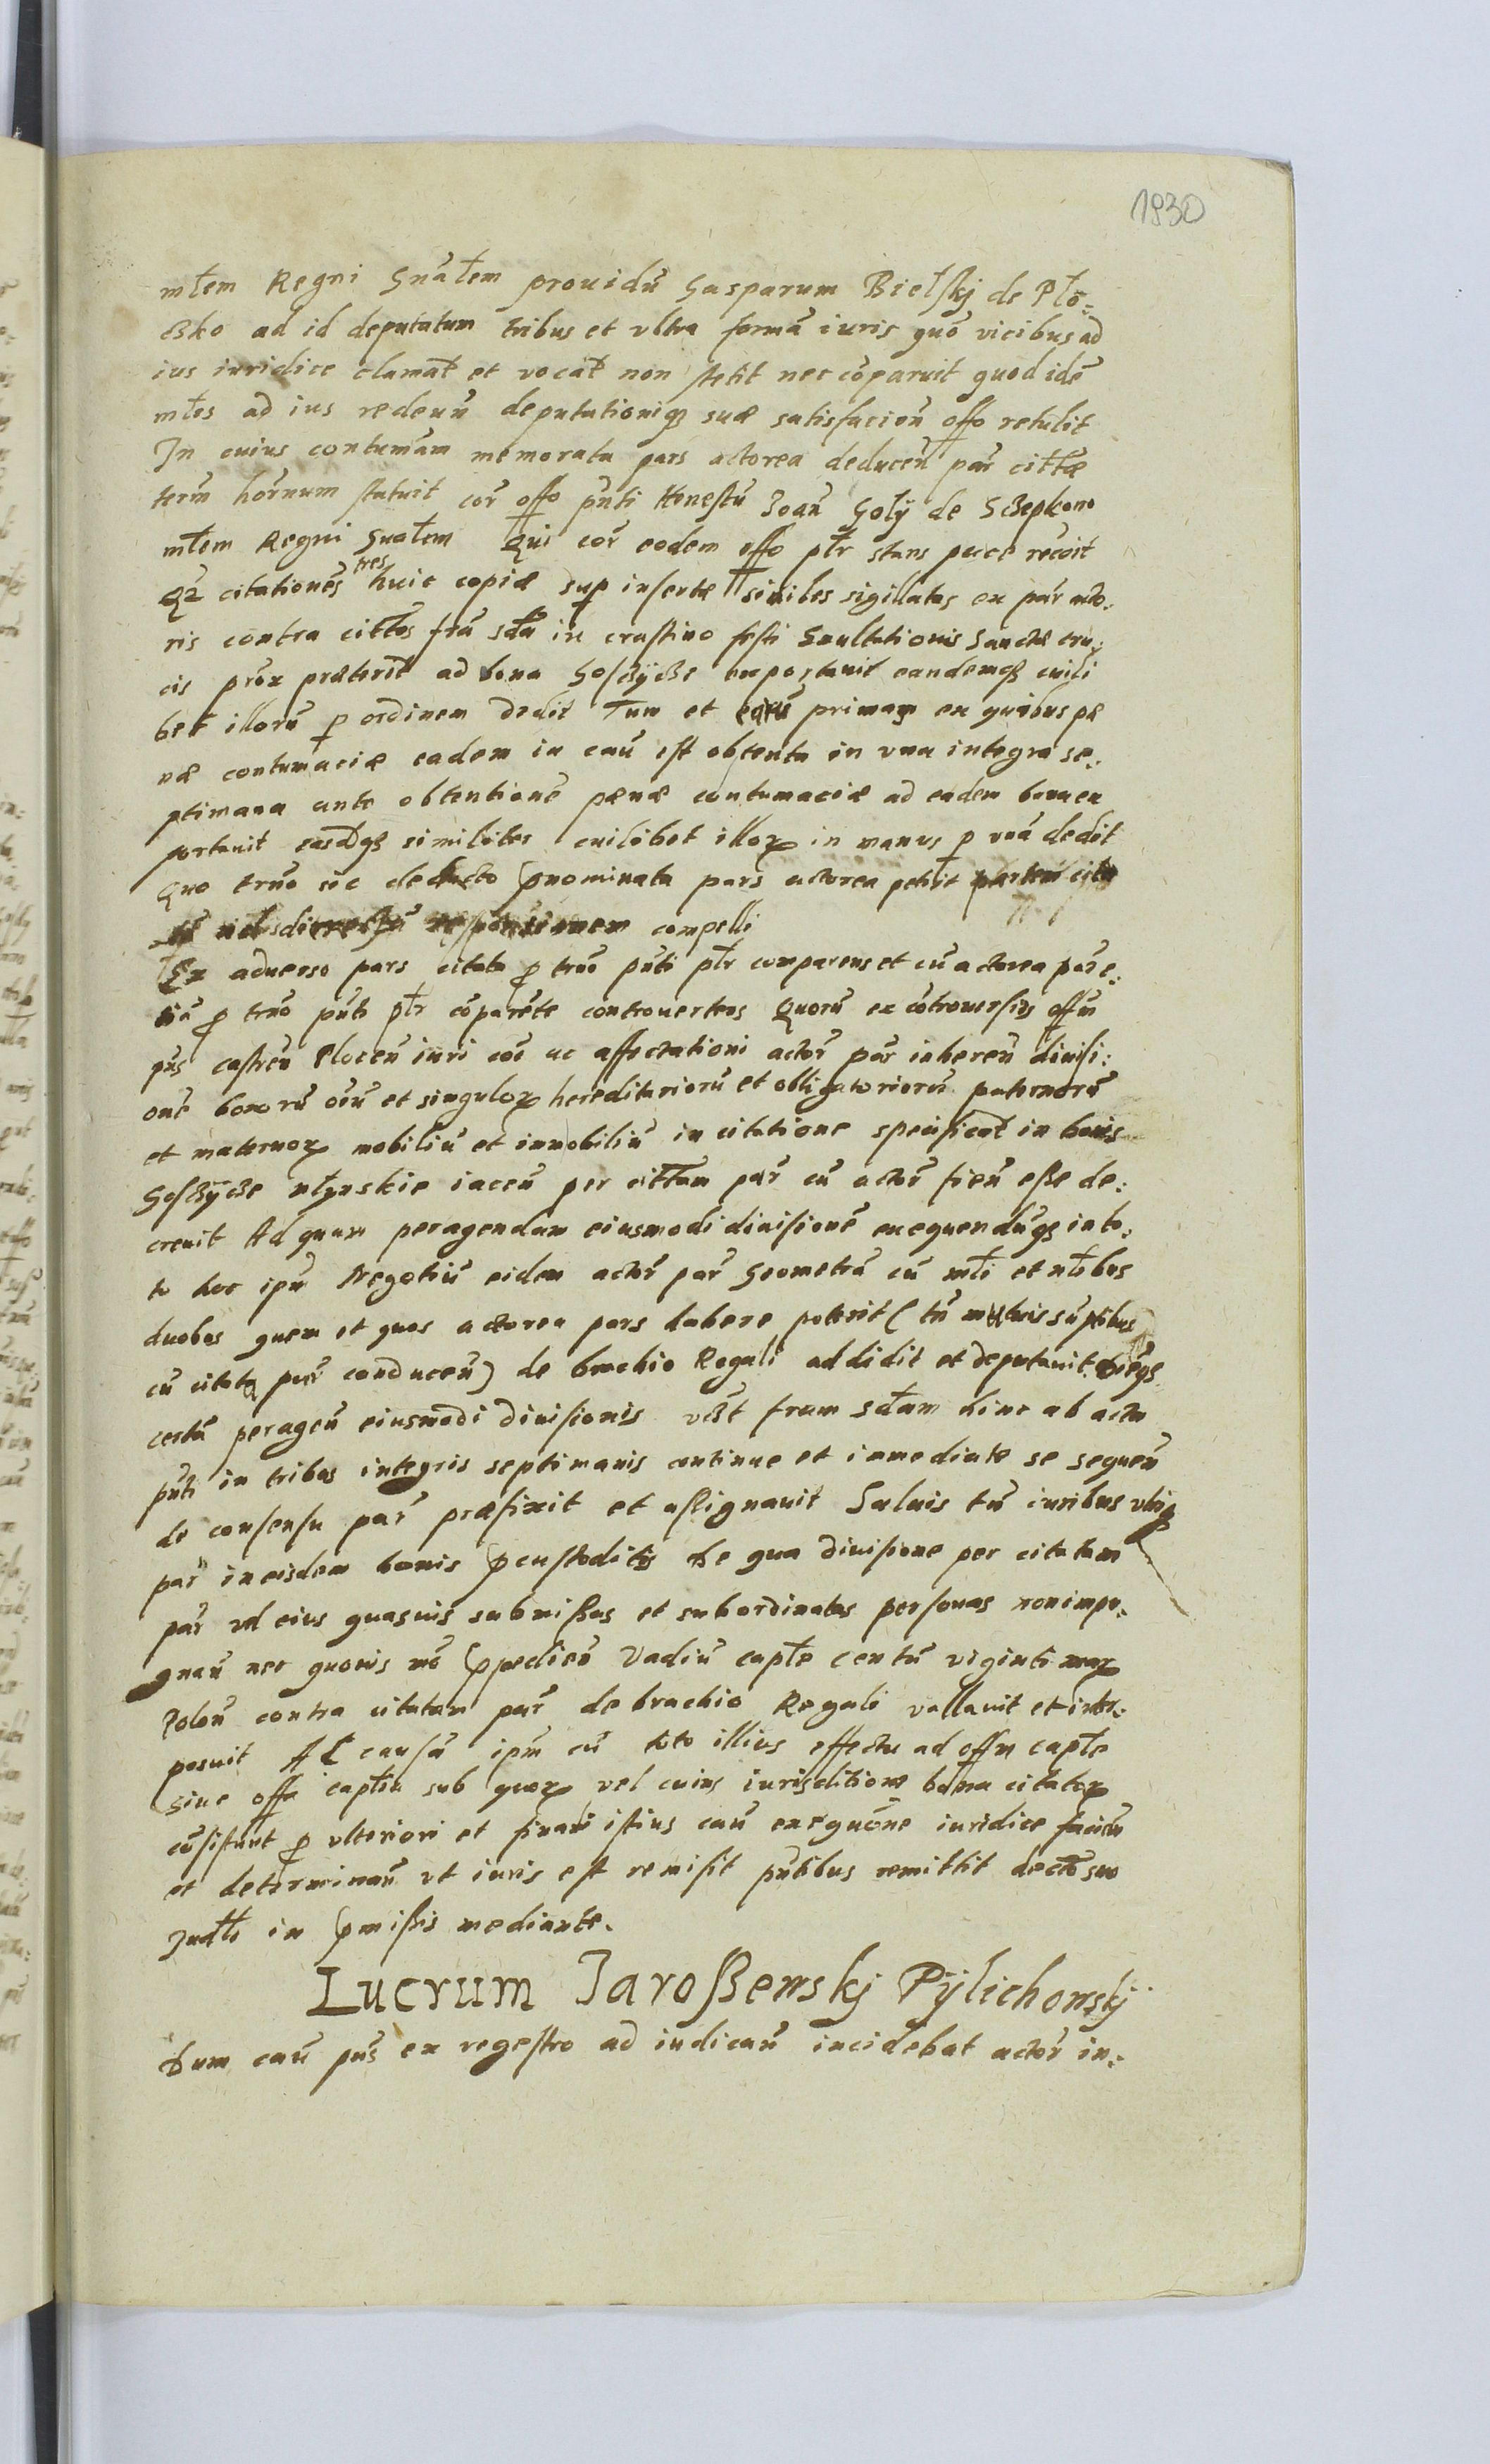 1930
młem Regni Gnałem prouidũ Gasparum Bielſkj de Pło:
ßko ad id deputatum tribus et vltra formã iuris quõ vicibus ad
ius iuridice clamat̃ et vocat̃ non ſtetit nec cõparuit quod idẽ
młes ad ius redeuñ deputationiq; suæ satisfacieñ offo retulit
In cuius contumãm memorata pars actorea deduceñ par̃ cittæ
term̃ hor̃num ſtatuit cor̃ offo pñti Honeſtũ Joañ Goły de Sczepkowo
młem Regni Gnałem Qui cor̃ eodem offo płr stans pace recoit
Qz citationes tres huic copiæ sup insertæ similes sigillatas ex par̃ acto:
ris contra cittos fr̃ia sc̃da in craſtino feſti Exaltationis Sanctæ cru:
cis prox præterit̃ ad bona Goſlßÿcße exportauit eandemq; cuili
bet illorũ p ordinem dedit Tum et primas ex quibus pæ
næ contumaciæ eadem in cau͂ eſt obtenta in vna integra se:
ptimana ante obtentionẽ pænæ contumaciæ ad eadem bona ex
portauit easdq; similiter cuilibet illoꝝ in manus p vnã dedit
Quo trno sic deducto pnominata pars actorea petiit partem cita
compelli
Ex aduerso pars citata p trno pñti płr comparens et cũ actorea par̃ e:
tiã p trno pñti płr cõparẽte controuertens Quorũ ex cõtrouersijs offm
pñs caſtreñ Plocen̄ iuri cõi ac affectationi actor̃ par̃ inhereñ diuisi:
onẽ bonorũ oĩũ et singuloꝝ hereditariorũ et obligatoriorũ paternorũ
et maternoꝝ mobiliũ et immobiliũ in citatione specificat̃ in bonis
Goſlßÿcße młynskie iaceñ per cittam par̃ cũ actor̃ fieñ eße de:
creuit Ad quam peragendam eiusmodi diuisionẽ exequendũq; in to:
to hoc ipm̃ Negotiũ eidem actor̃ par̃ Geometrã cũ młi et nłibus
duobus quem et quos actorea pars habere poterit (tñ mutuis sũptibus
cũ citata par̃ conduceñ) de brachio Regali addidit et deputauit. dieq;
certũ perageñ eiusmodi diuisionis vidzt friam sc̃dam hinc ab actu
pñti in tribus integris septimanis continue et immediate se sequeñ
de consensu par̃ præfixit et aſſignauit Saluis tñ iuribus vtriq;
par̃ in eisdem bonis pcuſtoditis De qua diuisione per citatam
par̃ vel eius quasuis submißas et subordinatas personas non impu:
gnañ nec quouis mõ ppedieñ Vadiũ capłe Centũ viginti marꝝ
Polon̄ contra citatam par̃ de brachio Regali vallauit et inter:
posuit Ac causã ipm̃ cũ toto illius effectu ad offm̃ capłe
siue offa capłia sub quoꝝ vel cuius iurisditione bona citatoꝝ
cõsiſtunt p vlteriori et finali iſtius cau͂ exequõne iuridice facieñ
et determinañ vt iuris eſt remisit pñtibus remittit decto suo
Judłi in pmißis mediante.
Lucrum Jaroßewskj Pÿlichowskÿ
Dum cau͂ pñs ex regeſtro ad iudicañ incidebat actor̃ in: